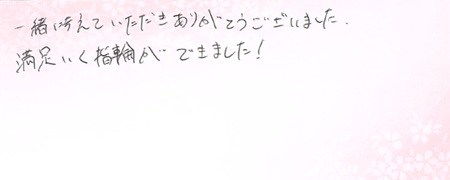 一緒に考えていただきありがとうございました.
満足いく指輪ができました!